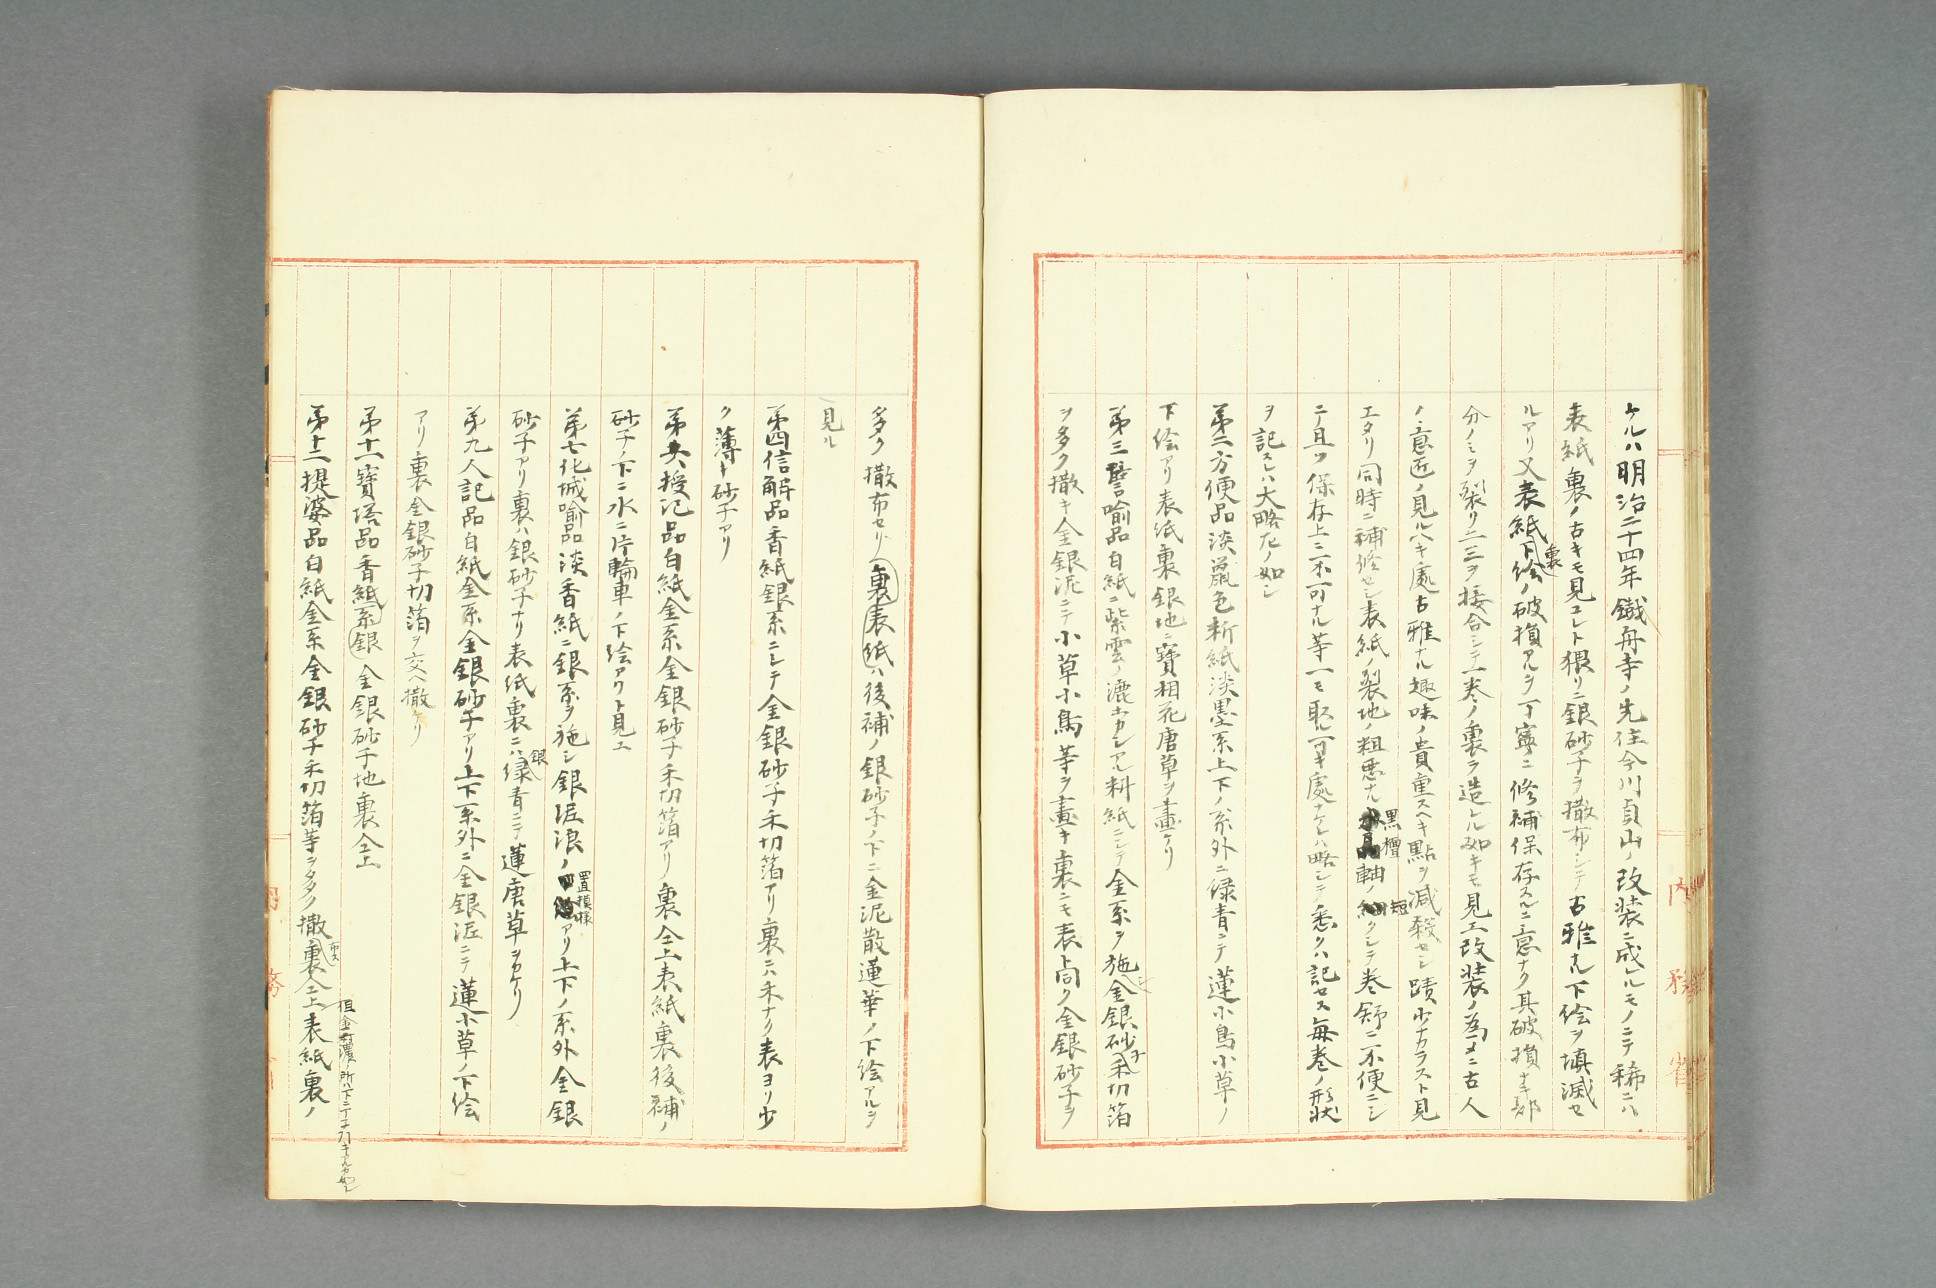 ケルハ明治二十四年鐡舟寺ノ先住今川貞山ノ改装ニ成レルモノニテ稀ニハ
表紙裏ノ古キモ見ユレト猥リニ銀砂子ヲ撒布シテ古雅ナル下絵ヲ填滅セ
ルアリ又表紙裏下絵ノ破損アルヲ丁寧ニ修補保存スルニ意ナク其破損ナキ部
分ノミヲ裂リ二三ヲ接合シテ一巻ノ裏ヲ造レル如キモ見エ改装ノ為メニ古人
ノ意匠ノ見ルヘキ處古雅ナル趣味ノ貴重スヘキ點ヲ減殺セシ蹟少ナカラスト見
エタリ同時ニ補修セシ表紙ノ裂地ノ粗悪ナル黒檀軸ノ短クシテ巻舒ニ不便ニシ
テ且ツ保存上ニ不可ナル等一モ取ル可キ處ナケレハ略シテ悉クハ記セス毎巻ノ形状
ヲ記スレハ大略左ノ如シ
第二方便品淡鼠色斬紙淡墨系上下ノ系外ニ緑青ニテ蓮小鳥小草ノ
下絵アリ表紙裏銀地ニ寶相花唐草ヲ畫ケリ
第三譬喩品白紙ニ紫雲ノ漉カシアル料紙ニシテ金系ヲ施シ金銀砂子禾切箔
ヲ多ク撒キ金銀泥ニテ小草小鳥等ヲ畫キ裏ニモ表ト同ク金銀砂子ヲ
多ク撒布セリ表紙裏ハ後補ノ銀砂子ノ下ニ金泥散蓮華ノ下絵アルヲ
見ル
第四信解品香紙銀系ニシテ金銀砂子禾切箔アリ裏ニハ禾ナリ表ヨリ少
ク薄ト砂子アリ
第六授記品白紙金系金銀砂子禾切箔アリ裏仝上表紙裏後補ノ
砂子ノ下ニ水ニ片輪車ノ下絵アクト見ユ
第七化城喩品淡香紙ニ銀系ヲ施シ銀泥浪ノ置模様アリ上下ノ系外金銀
砂子アリ裏ハ銀砂子ナリ表紙裏ニハ銀緑青ニテ蓮唐草ヲカケリ
第九人記品白紙金系金銀砂子アリ上下系外ニ金銀泥ニテ蓮小草ノ下絵
アリ裏金銀砂子切箔ヲ交ヘ撒ケリ
第十一寶塔品香紙銀系金銀砂子地裏仝上
第十二提婆品白紙金系金銀砂子禾切箔等ヲ多ク撒布ス裏仝上表紙裏ノ
内務省